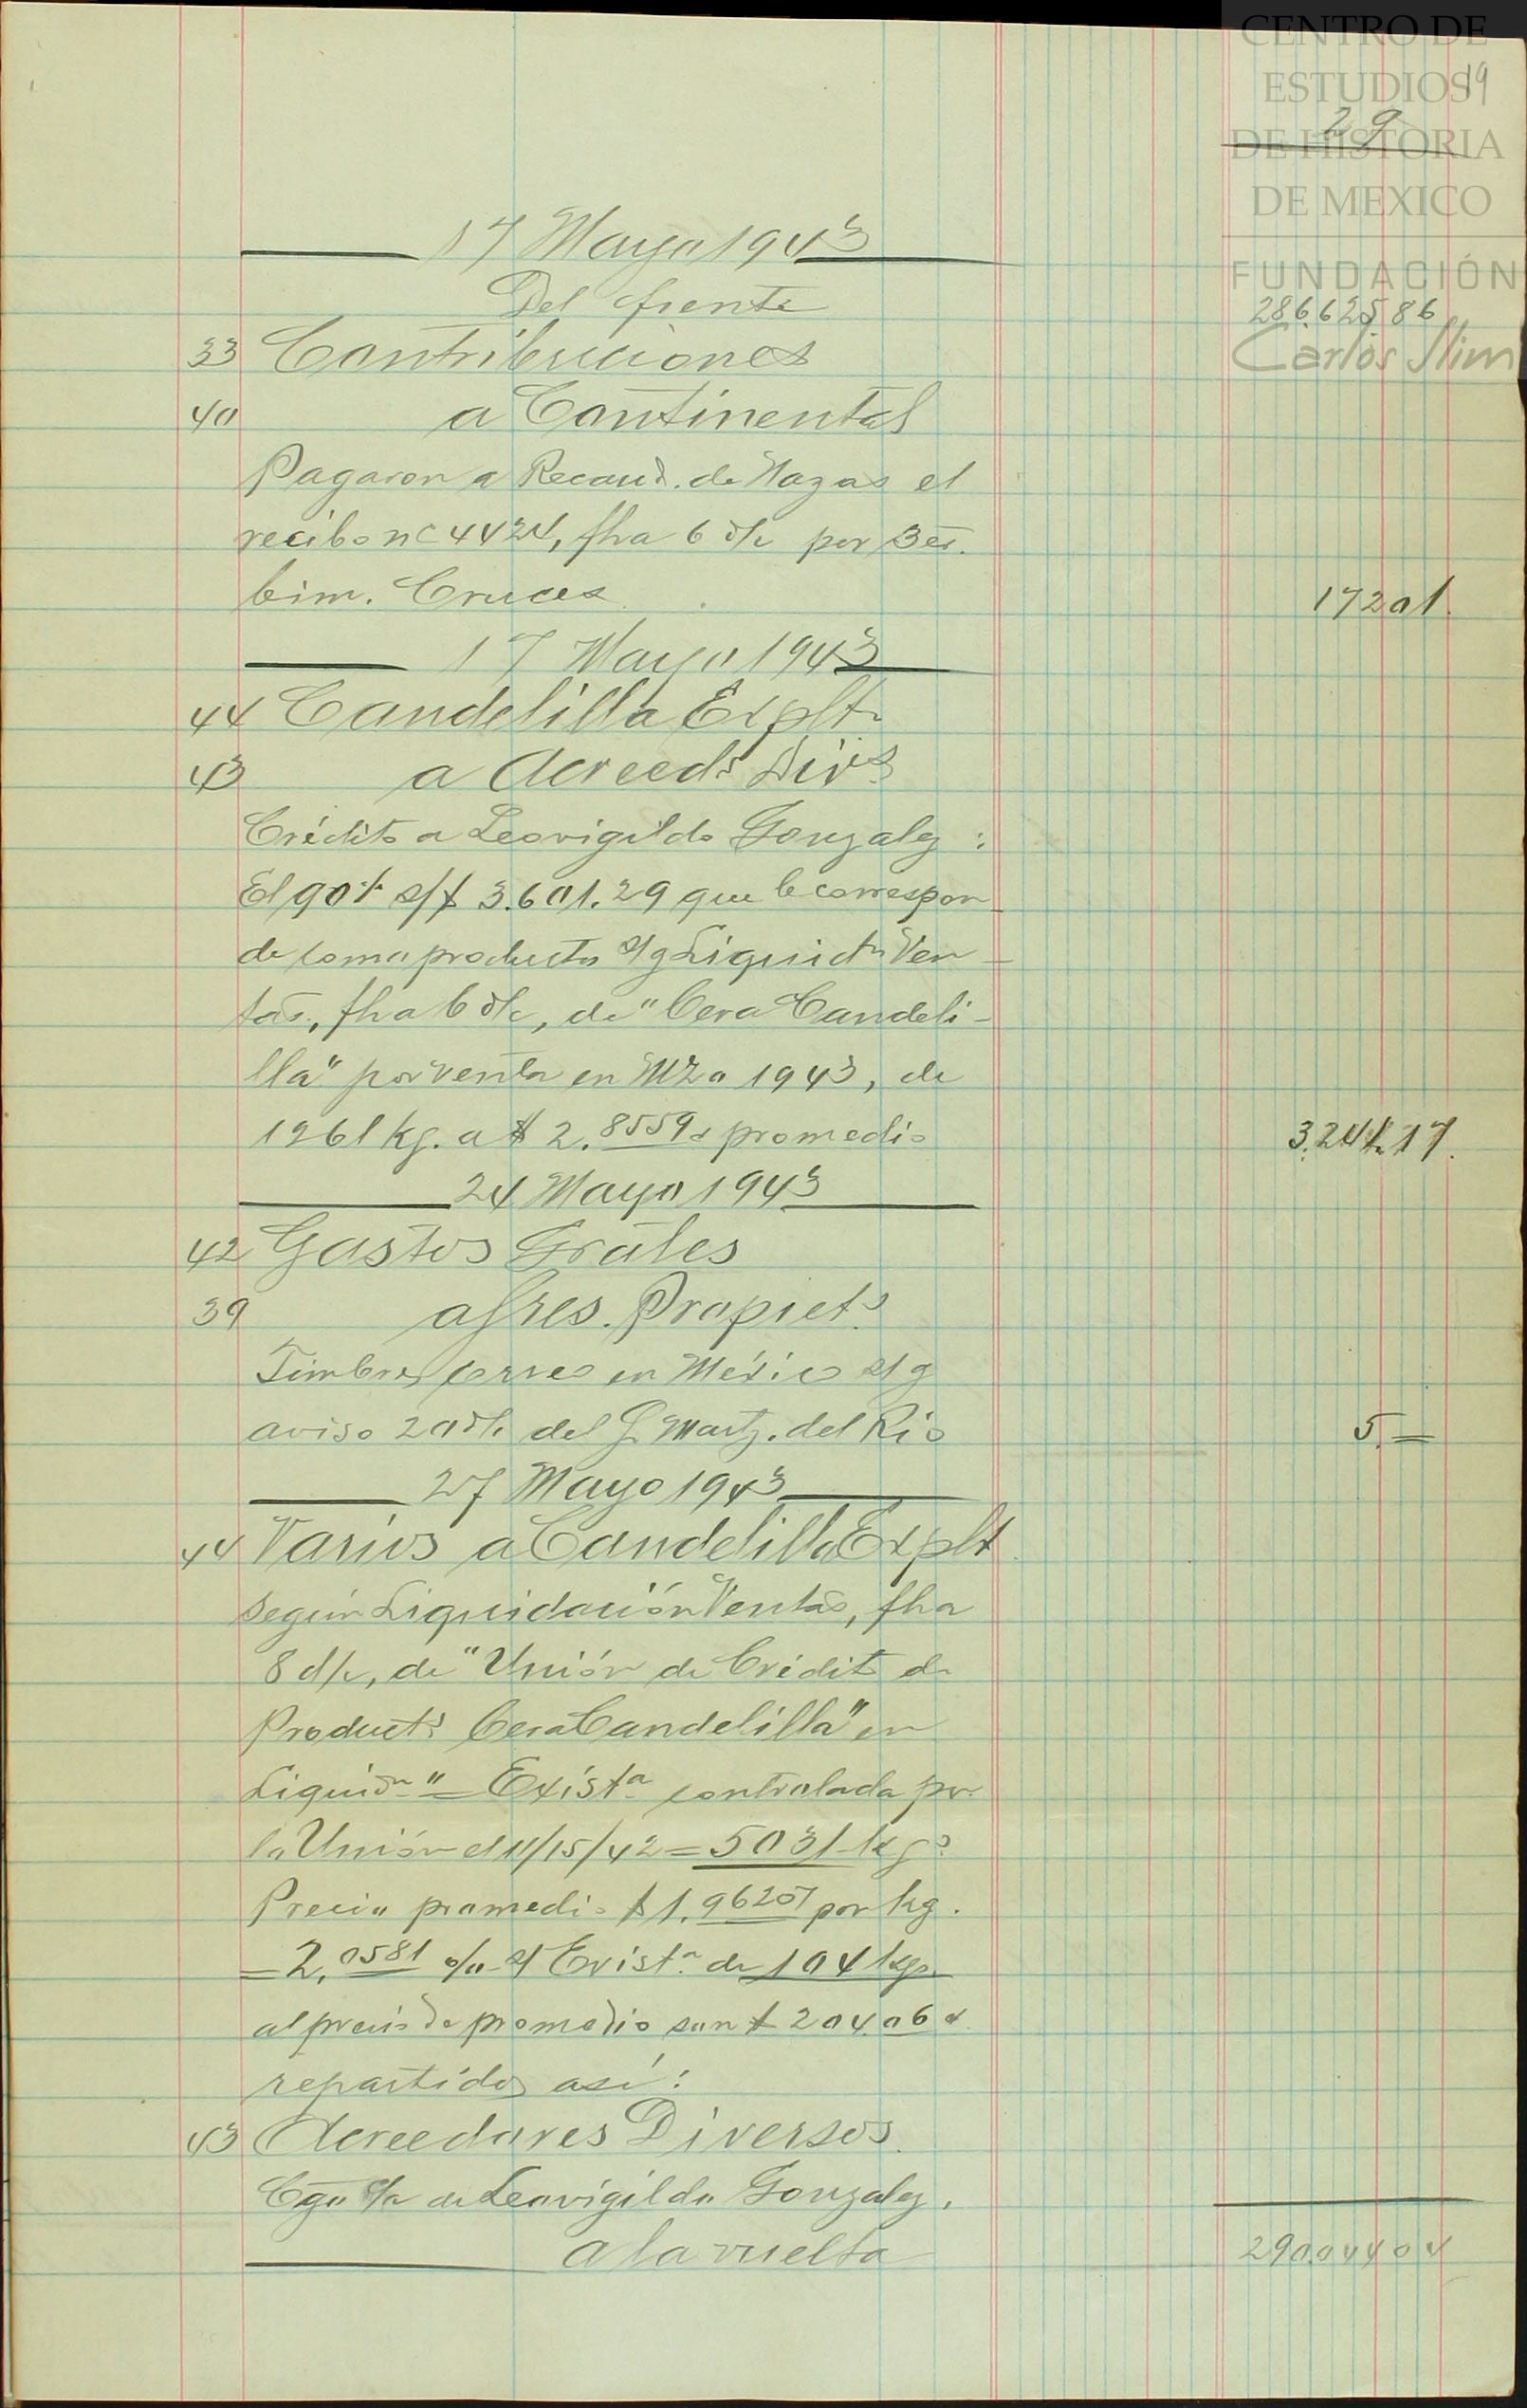 CENTRO DE
ESTUDIOS 19
29
DE HISTORIA
DE MEXICO
17 Mayo 1943
FUNDACIÓN
Del frente 286.625 86
Carlos Slim
33 Contribuciones
40 a Continental
Pagaron a Recaud. de Nazas el
recibo nº 4424, fha 6 d/c por 3er.
bim. Cruces 172 01
17 Mayo 1943
44 Candelilla Explt
43 a Acreeds Divs
Crédito a Leovigildo Gonzalez :
El 90% s/$ 3.601.29 que le correspon-
de como producto s/g Liquidn Ven-
tas, fha 6 d/c, de "Cera Candeli-
lla" por venta en Mzo 1943, de
1261 kg. a $ 2.8559 promedio 3.241.17
24 Mayo 1943
42 Gastos Grales
39 a Sres. Propiets
Timbres correo en México s/g
aviso 20 d/c del G. Martz. del Rio 5.=
27 Mayo 1943
44 Varios a Candelilla Explt
según Liquidación Ventas, fha
8 d/c, de "Unión de Crédito de
Products Cera Candelilla" en
Liquidn" = Exista controlada por
la Unión el 11/15/42 = 5031 kgs
Precio promedio $ 1.96207 por kg.
= 2.0581 % s/ Exista de 104 kgs.
al precio de promedio son $ 204.06
repartidos así:
43 Acreedores Diversos
Cgo c/a de Leovigildo Gonzalez.
a la vuelta 290.044 04